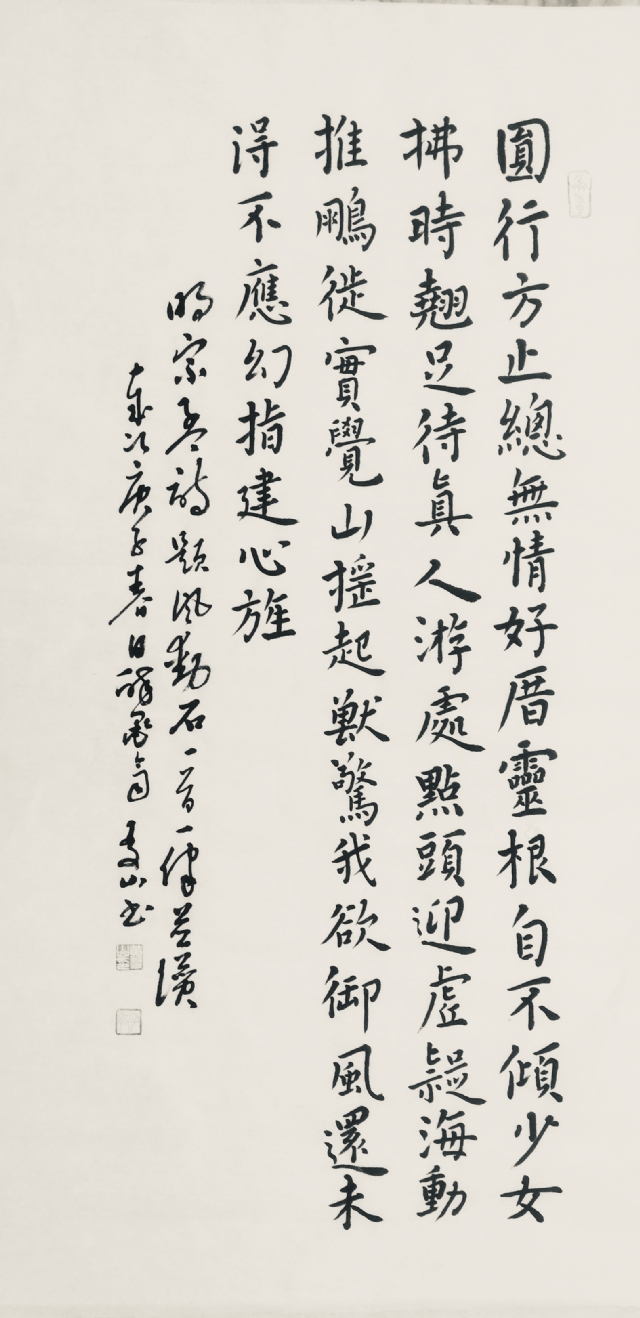 圓行方止總無情好厝靈根自不傾少女
拂時翹足待真人游處點頭迎虛疑海動
推鵬徙實覺山摇起獸驚我欲御風還未
得不應幻指建心旌
明宗孟诗题风動石一首一律并演
歲次庚子春日 山书